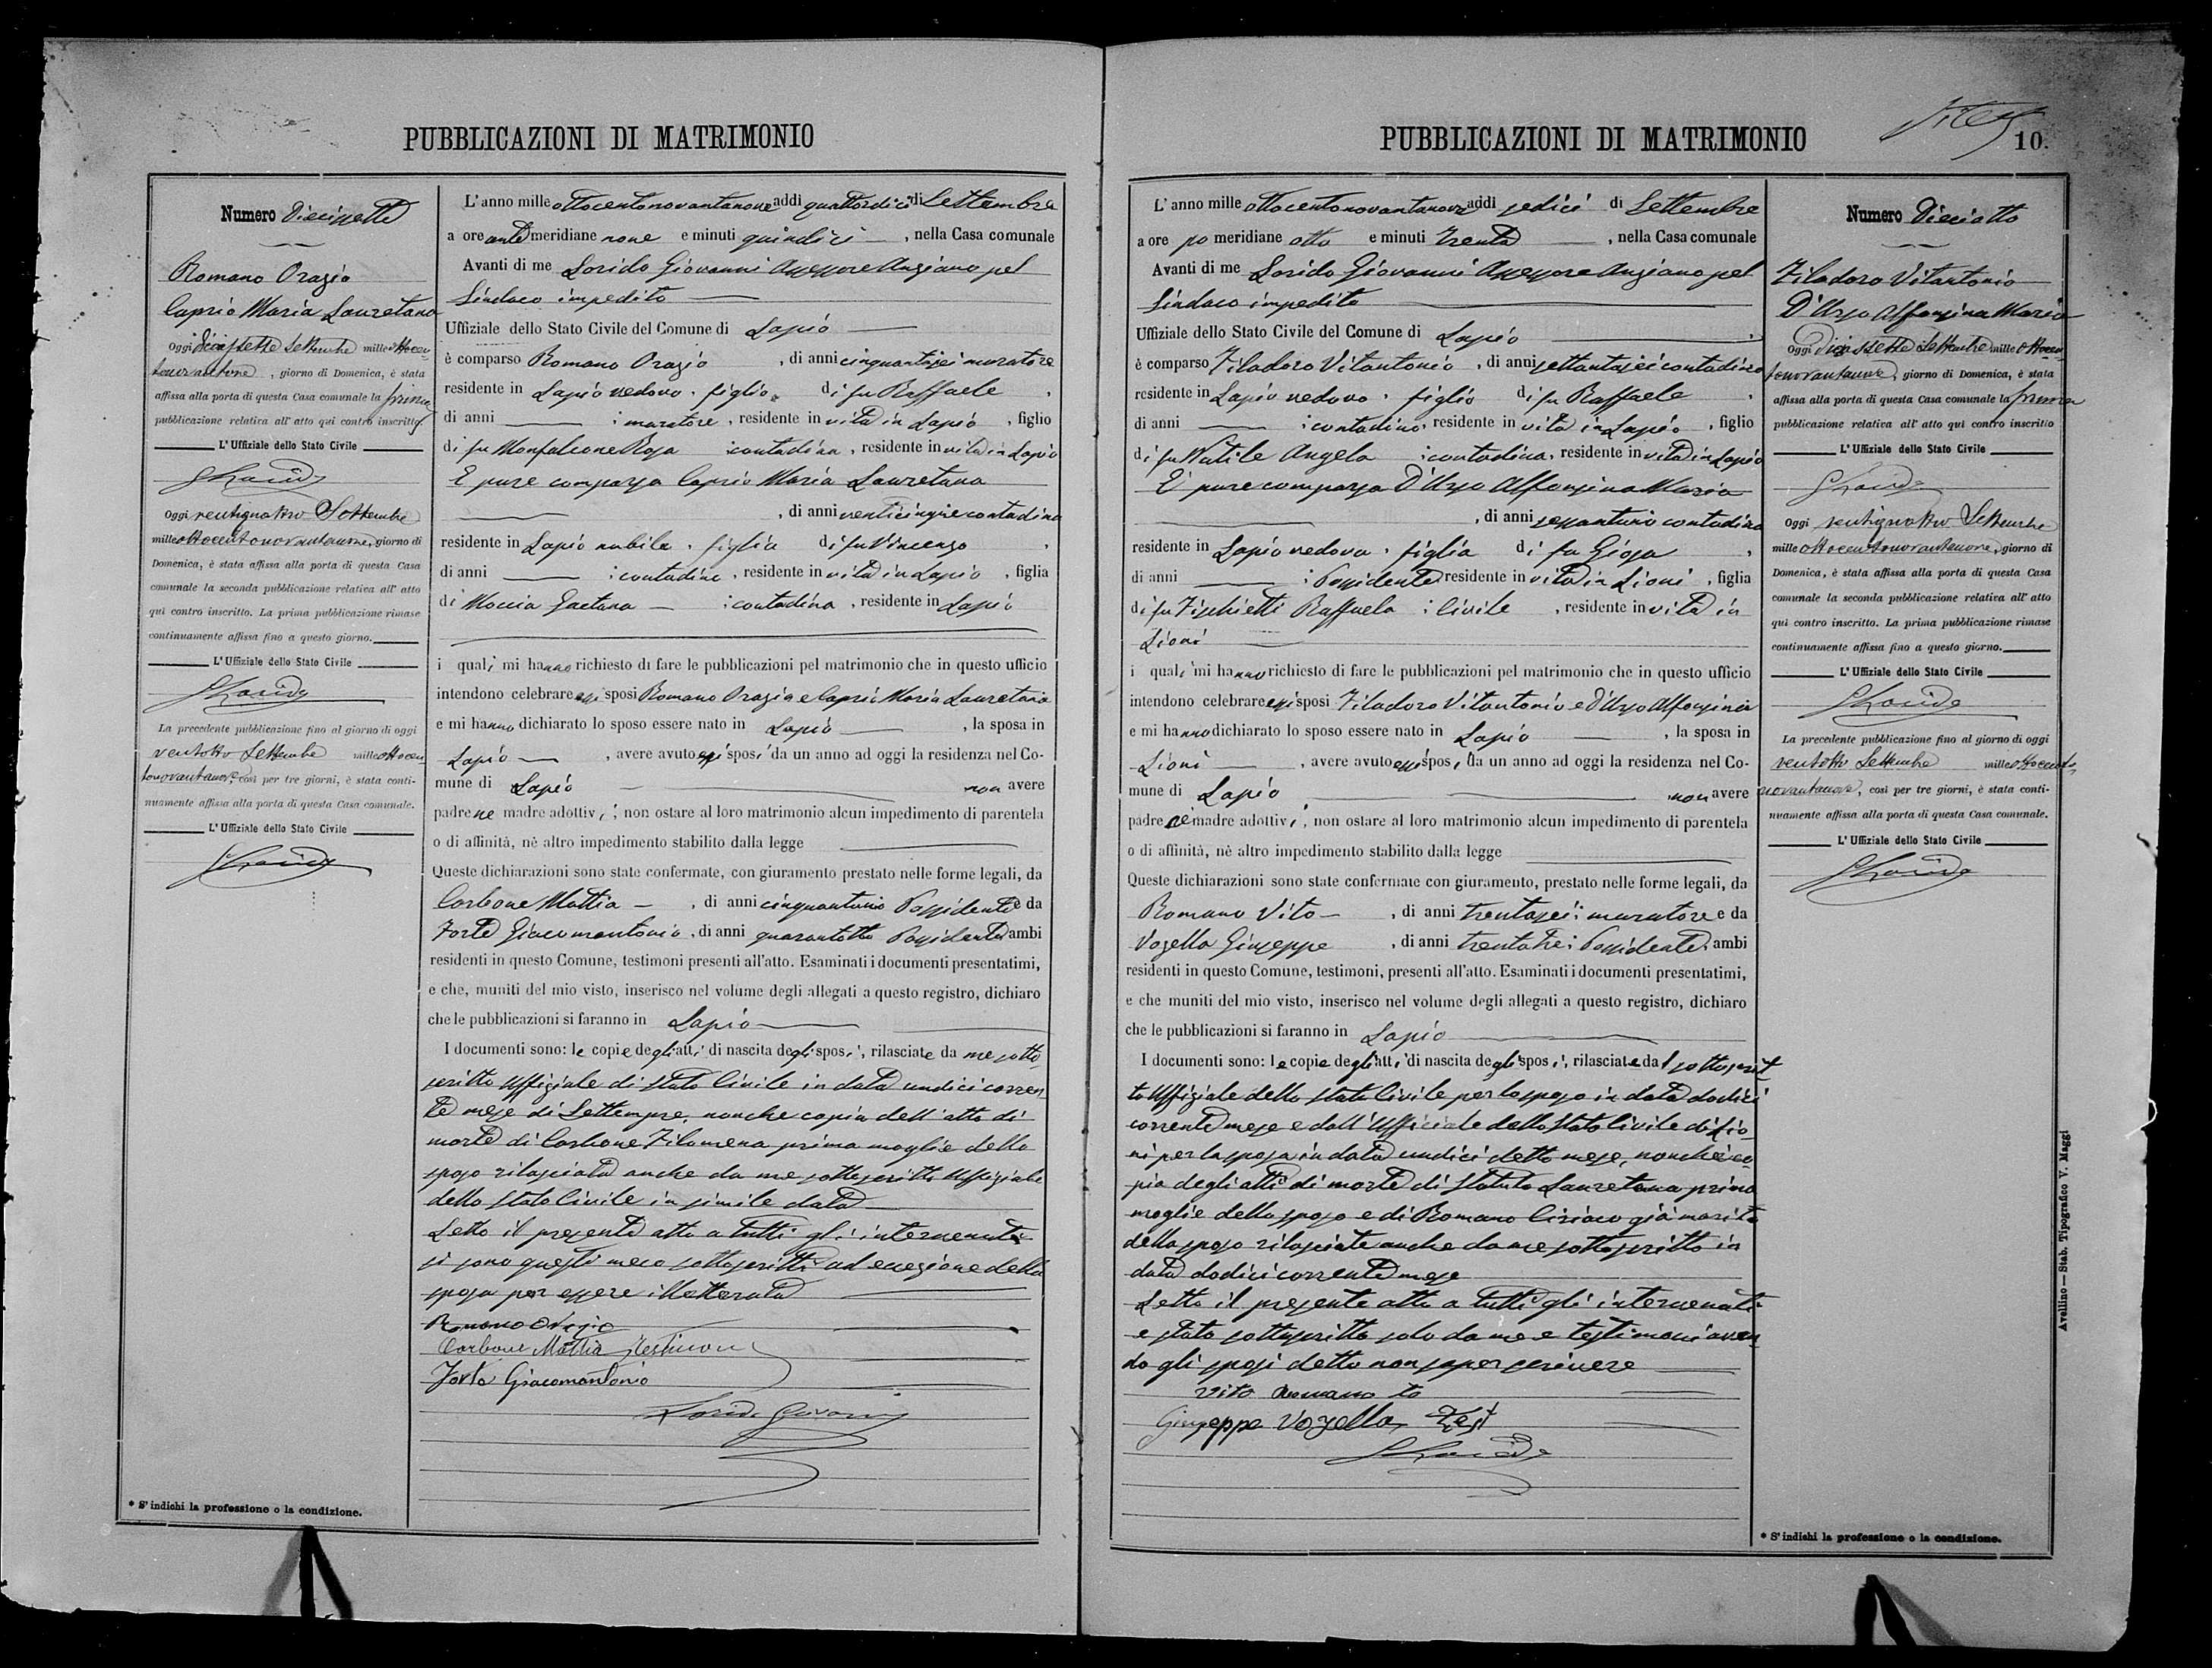 PUBBLICAZIONI DI MATRIMONIO
Numero Diecissette
Romano Orazio
Caprio Maria Lauretana
Oggi diciassette Settembre mille ottocen
tonovantanove, giorno di Domenica, è stata
affissa alla porta di questa Casa comunale la prima
pubblicazione relativa all' atto qui contro inscritto
L' Uffiziale dello Stato Civile
Oggi ventiquattro Settembre
mille ottocentonovantanove, giorno di
Domenica, è stata affissa alla porta di questa Casa
comunale la seconda pubblicazione relativa all' atto
qui contro inscritto. La prima pubblicazione rimase
continuamente affissa fino a questo giorno.
L' Uffiziale dello Stato Civile
La precedente pubblicazione fino al giorno di oggi
ventotto Settembre mille ottocen
tonovantanove, così per tre giorni, è stata conti-
nuamente affissa alla porta di questa Casa comunale.
L' Uffiziale dello Stato Civile
* S' indichi la professione o la condizione.
L' anno mille ottocentonovantanove addì quattordici di Settembre
a ore ante meridiane nove e minuti quindici, nella Casa comunale
Avanti di me Lorido Giovanni Assessore Anziano pel
Sindaco impedito
Uffiziale dello Stato Civile del Comune di Lapio
è comparso Romano Orazio, di anni cinquantasei muratore
residente in Lapio vedovo, figlio di fu Raffaele
di anni ; muratore, residente in vita in Lapio, figlio
di fu Monfalcone Rosa ; contadina, residente in vita in Lapio
E pure comparsa Caprio Maria Lauretana
, di anni venticinque contadina
residente in Lapio nubile, figlia di fu Vincenzo
di anni ; contadino, residente in vita in Lapio, figlia
di Moccia Gaetana ; contadina, residente in Lapio
i quali mi hanno richiesto di fare le pubblicazioni pel matrimonio che in questo ufficio
intendono celebrare essi sposi Romano Orazio e Caprio Maria Lauretana
e mi hanno dichiarato lo sposo essere nato in Lapio, la sposa in
Lapio, avere avuto essi sposi da un anno ad oggi la residenza nel Co-
mune di Lapio non avere
padre ne madre adottivi; non ostare al loro matrimonio alcun impedimento di parentela
o di affinità, nè altro impedimento stabilito dalla legge
Queste dichiarazioni sono state confermate, con giuramento prestato nelle forme legali, da
Carbone Mattia, di anni cinquantuno Possidente e da
Forte Giacomantonio, di anni quarantotto Possidente ambi
residenti in questo Comune, testimoni presenti all'atto. Esaminati i documenti presentatimi,
e che, muniti del mio visto, inserisco nel volume degli allegati a questo registro, dichiaro
che le pubblicazioni si faranno in Lapio
I documenti sono: le copie degli atti di nascita degli sposi, rilasciate da me sotto
scritto Uffiziale di Stato Civile in data undici corren
te mese di Settempre, nonche copia dell' atto di
morte di Carbone Filomena prima moglie dello
sposo rilasciata anche da me sottoscritto Uffiziale
dello Stato Civile in simile data
Letto il presente atto a tutti gli intervenuti
si sono questi meco sottoscritti ad eccezione della
sposa per essere illetterata
Romano Orazio
Carbone Mattia Testimone
Forte Giacomantonio
Lorido Giovanni
PUBBLICAZIONI DI MATRIMONIO
10.
L' anno mille ottocentonovantanove addì sedici di Settembre
a ore po meridiane otto e minuti trenta, nella Casa comunale
Avanti di me Lorido Giovanni Assessore Anziano pel
Sindaco impedito
Uffiziale dello Stato Civile del Comune di Lapio
è comparso Filadoro Vitantonio, di anni settantasei contadino
residente in Lapio vedovo, figlio di fu Raffaele
di anni ; contadino, residente in vita in Lapio, figlio
di fu Natile Angela ; contadina, residente in vita in Lapio
E' pure comparsa D'Urso Alfonsina Maria
, di anni sessantuno contadina
residente in Lapio vedova, figlia di fu Giosa
di anni ; Possidente residente in vita in Lioni, figlia
di fu Fischietti Raffaela ; civile, residente in vita in
Lioni
i quali mi hanno richiesto di fare le pubblicazioni pel matrimonio che in questo ufficio
intendono celebrare essi sposi Filadoro Vitantonio e D'Urso Alfonsina
e mi hanno dichiarato lo sposo essere nato in Lapio, la sposa in
Lioni, avere avuto essi sposi da un anno ad oggi la residenza nel Co-
mune di Lapio non avere
padre ne madre adottivi, non ostare al loro matrimonio alcun impedimento di parentela
o di affinità, nè altro impedimento stabilito dalla legge
Queste dichiarazioni sono state confermate con giuramento, prestato nelle forme legali, da
Romano Vito, di anni trentasei; muratore e da
Vozella Giuseppe, di anni trentatre; Possidente ambi
residenti in questo Comune, testimoni, presenti all'atto. Esaminati i documenti presentatimi,
e che muniti del mio visto, inserisco nel volume degli allegati a questo registro, dichiaro
che le pubblicazioni si faranno in Lapio
I documenti sono: le copie degli atti di nascita degli sposi, rilasciate dal sottoscrit
to Uffiziale dello Stato Civile per lo sposo in data dodici
corrente mese e dall' Ufficiale dello Stato Civile di Lio
ni per la sposa in data undici detto mese, nonchè co
pia degli atti di morte di Statuto Lauretana prima
moglie dello sposo e di Romano Ciriaco già marito
della sposa rilasciate anche da me sottoscritto in
data dodici corrente mese
Letto il presente atto a tutti gli intervenuti
e stato sottoscritto solo da me e testimoni aven
do gli sposi detto non saper scrivere
Vito Romano to
Giuseppe Vozella, Test
Numero Dieciotto
Filadoro Vitantonio
D'Urso Alfonsina Maria
Oggi diciassette Settembre mille ottocen
tonovantanove, giorno di Domenica, è stata
affissa alla porta di questa Casa comunale la prima
pubblicazione relativa all' atto qui contro inscritto
L' Uffiziale dello Stato Civile
Oggi ventiquattro Settembre
mille ottocentonovantanove, giorno di
Domenica, è stata affissa alla porta di questa Casa
comunale la seconda pubblicazione relativa all' atto
qui contro inscritto. La prima pubblicazione rimase
continuamente affissa fino a questo giorno.
L' Uffiziale dello Stato Civile
La precedente pubblicazione fino al giorno di oggi
ventotto Settembre mille ottocento
novantanove, così per tre giorni, è stata conti-
nuamente affissa alla porta di questa Casa comunale.
L' Uffiziale dello Stato Civile
* S' indichi la professione o la condizione.
Avellino — Stab. Tipografico V. Maggi